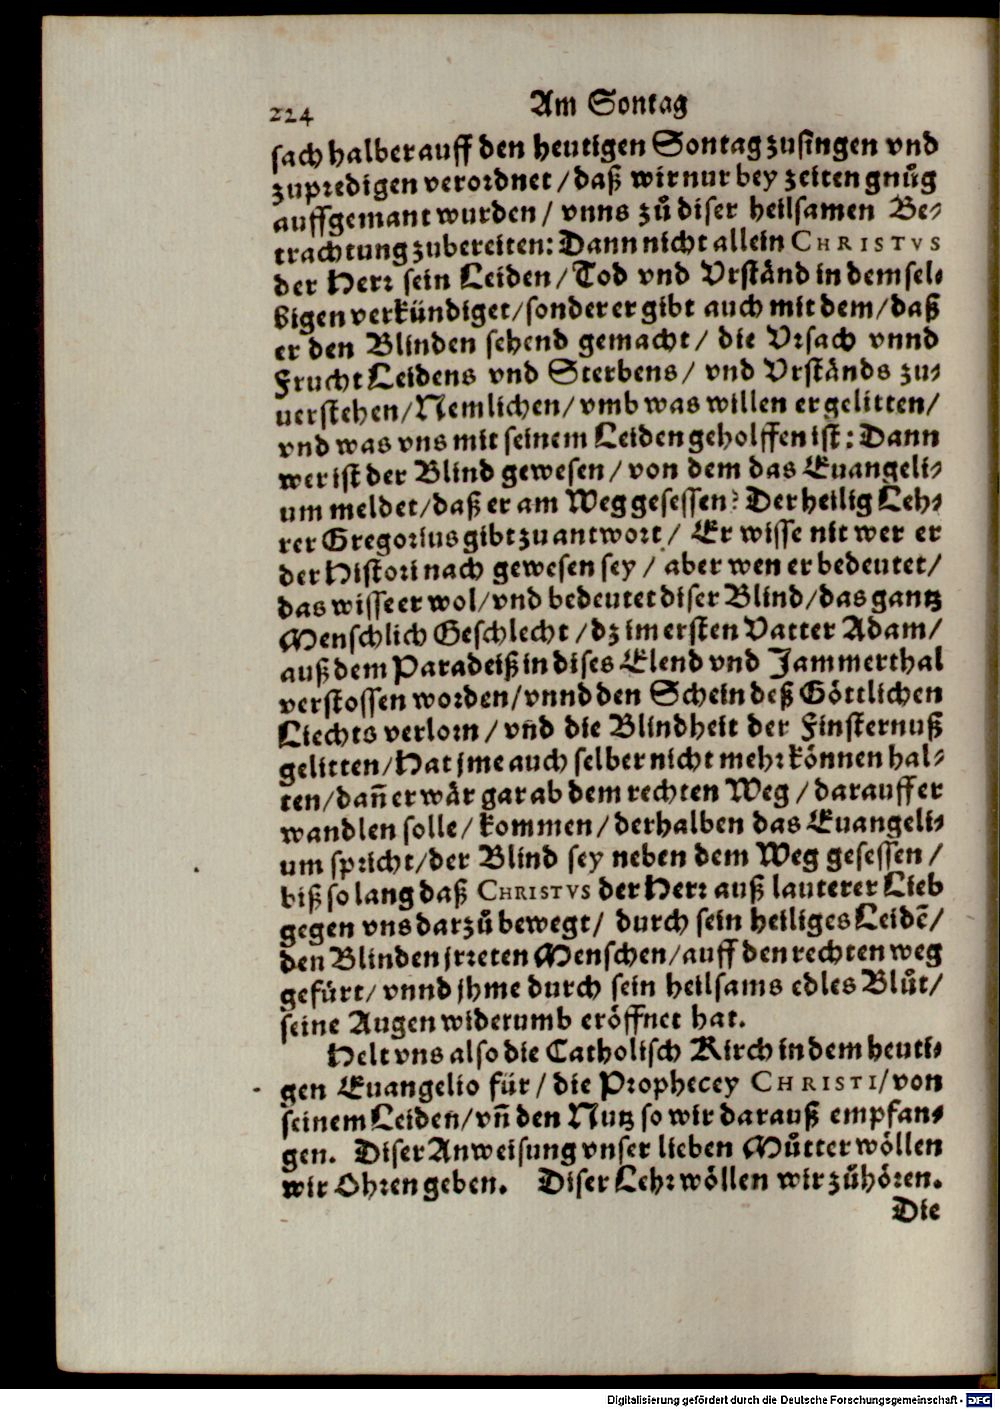 224
Am Sontag
sach halber auff den heutigen Sontag zusingen vnd
zupredigen verordnet / daß wir nur bey zeiten gnůg
auffgemant wurden / vnns zů diser heilsamen Be⸗
trachtung zubereiten: Dann nicht allein CHRISTVS
der Herr sein Leiden / Tod vnd Vrständ in demsel⸗
bigen verkündiget / sonder er gibt auch mit dem / daß
er den Blinden sehend gemacht / die Vrsach vnnd
Frucht Leidens vnd Sterbens / vnd Vrständs zu⸗
uerstehen / Nemlichen / vmb was willen er gelitten /
vnd was vns mit seinem Leiden geholffen ist: Dann
wer ist der Blind gewesen / von dem das Euangeli⸗
um meldet / daß er am Weg gesessen? Der heilig Leh⸗
rer Gregorius gibt zu antwort / Er wisse nit wer er
der Histori nach gewesen sey / aber wen er bedeutet /
das wisse er wol / vnd bedeutet diser Blind / das gantz
Menschlich Geschlecht / dz im ersten Vatter Adam /
auß dem Paradeiß in dises Elend vnd Jammerthal
verstossen worden / vnnd den Schein deß Göttlichen
Liechts verlorn / vnd die Blindheit der Finsternuß
gelitten / Hat jme auch selber nicht mehr können hal⸗
ten / dañ er wär gar ab dem rechten Weg / darauff er
wandlen solle / kommen / derhalben das Euangeli⸗
um spricht / der Blind sey neben dem Weg gesessen /
biß so lang daß CHRISTVS der Herr auß lauterer Lieb
gegen vns darzů bewegt / durch sein heiliges Leidẽ /
den Blinden jrreten Menschen / auff den rechten weg
gefürt / vnnd jhme durch sein heilsams edles Blůt /
seine Augen widerumb eröffnet hat.
Helt vns also die Catholisch Kirch in dem heuti⸗
gen Euangelio für / die Prophecey CHRISTI / von
seinem Leiden / vñ den Nutz so wir darauß empfan⸗
gen. Diser Anweisung vnser lieben Můtter wöllen
wir Ohren geben. Diser Lehr wöllen wir zůhören.
Die
Digitalisierung gefördert durch die Deutsche Forschungsgemeinschaft - DFG